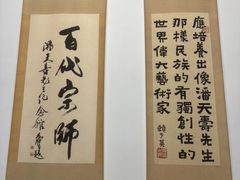 應培養出像潘天壽先生
那樣民族的有獨創性的
世界偉大藝術家
百代宗師
紀念館